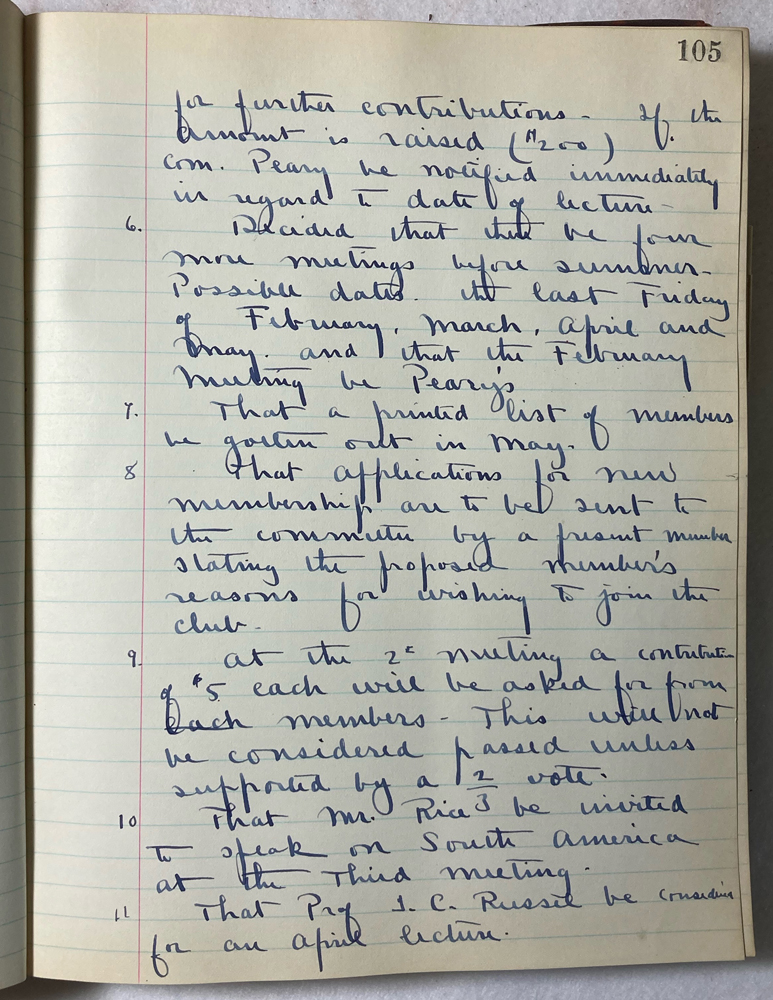 105
for further contributions - If the
amount is raised ($200)
Com. Peary be notified immediately
in regard to date of lecture -
6. Decided that there be four
more meetings before summer -
Possible dates. the last Friday
of February, March, April and
May. and that the February
Meeting be Peary's
7. That a printed list of members
be gotten out in May.
8 That applications for new
membership are to be sent to
the committee by a present member
stating the proposed member's
reasons for wishing to join the
club -
9. At the 2d meeting a contribution
of $5 each will be asked for from
Each members - This will not
be considered passed unless
supported by a 2/3 vote.
10 That Mr. Rice be invited
to speak on South America
at the Third meeting.
11 That Prof I. C. Russel be considered
for an April lecture.